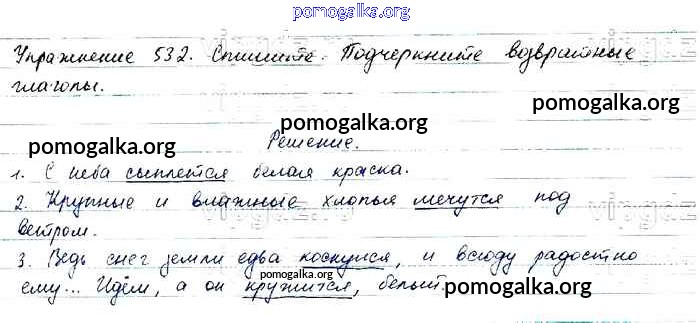 pomogalka.org
Упражнение 532. Спишите. Подчеркните возвратные
глаголы.
pomogalka.org
pomogalka.org
Решение.
pomogalka.org
1. С неба сыплется белая краска.
2. Крупные и влажные хлопья мечутся под
ветром.
3. Ведь снег земли едва коснулся, и всюду радостно
pomogalka.org
ему... Идём, а он кружится, белый.
pomogalka.org